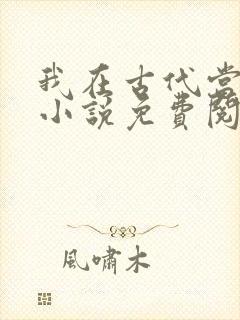 我在古代當
小說免費閱
風嘯木